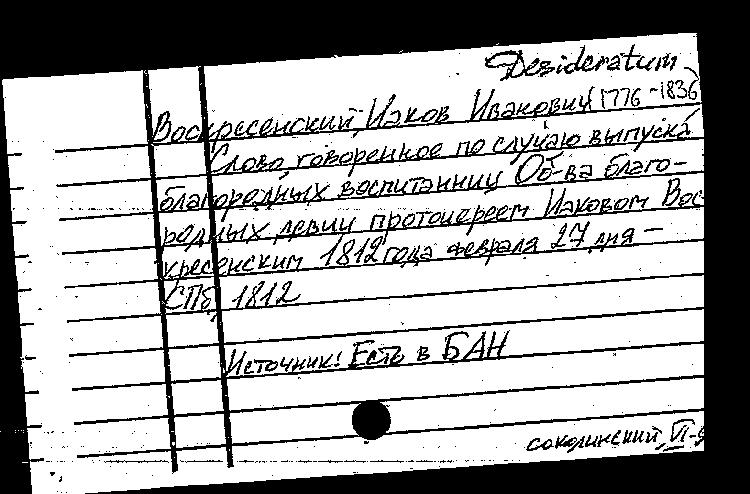 Desideratum
Воскресенский, Иаков Иванович 1776-1836
Слово, говоренное по случаю выпуска
благородных воспитанниц Об-ва благо-
родных девиц протоиереем Иаковом Вос
кресенским 1812 года февраля 27 дня -
СПб, 1812
Источник: Есть в БАН
соколинский, VI-